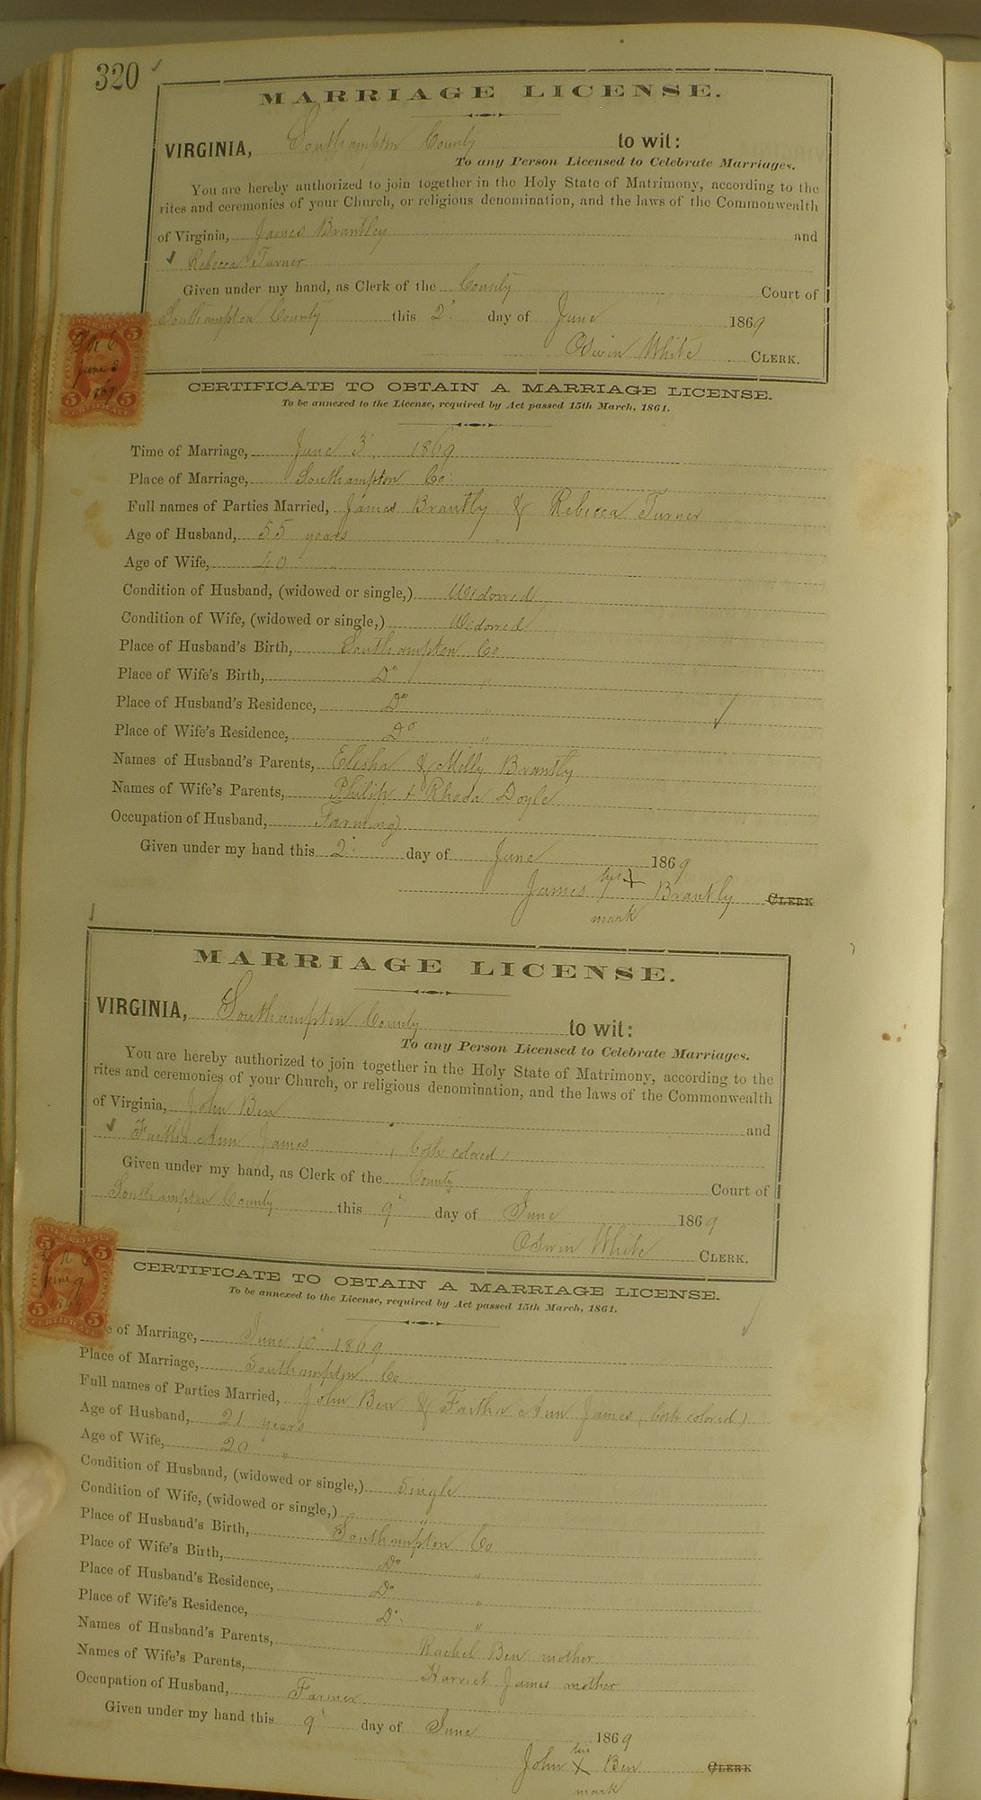 320
MARRIAGE LICENSE.
VIRGINIA, Southampton County to wit:
To any Person Licensed to Celebrate Marriages.
You are hereby authorized to join together in the Holy State of Matrimony, according to the
rites and ceremonies of your Church, or religious denomination, and the laws of the Commonwealth
of Virginia, James Brantley and
Rebecca Turner
Given under my hand, as Clerk of the County Court of
Southampton County this 2 day of June 1869
Oswin White CLERK.
CERTIFICATE TO OBTAIN A MARRIAGE LICENSE.
To be annexed to the License, required by Act passed 15th March, 1861.
5 5
June 2
1869
5 5
CERTIFICATE
Time of Marriage, June 3 1869
Place of Marriage, Southampton Co.
Full names of Parties Married, James Brantly & Rebecca Turner
Age of Husband, 55 years
Age of Wife, 40 "
Condition of Husband, (widowed or single,) Widowed
Condition of Wife, (widowed or single,) Widowed
Place of Husband's Birth, Southampton Co
Place of Wife's Birth, Do "
Place of Husband's Residence, Do "
Place of Wife's Residence, Do "
Names of Husband's Parents, Elisha & Milly Brantly
Names of Wife's Parents, Philip & Rhoda Doyle
Occupation of Husband, Farming
Given under my hand this 2 day of June 1869
James his X Brantly CLERK
mark
MARRIAGE LICENSE.
VIRGINIA, Southampton County to wit:
To any Person Licensed to Celebrate Marriages.
You are hereby authorized to join together in the Holy State of Matrimony, according to the
rites and ceremonies of your Church, or religious denomination, and the laws of the Commonwealth
of Virginia, John Ben and
Ann James, (both colored)
Given under my hand, as Clerk of the County Court of
Southampton County this 9 day of June 1869
Oswin White CLERK.
CERTIFICATE TO OBTAIN A MARRIAGE LICENSE.
To be annexed to the License, required by Act passed 15th March, 1861.
5 5
June 9
1869
5 5
e of Marriage, June 10 1869
Place of Marriage, Southampton Co
Full names of Parties Married, John Ben & Ann James (both colored)
Age of Husband, 21 years
Age of Wife, 20 "
Condition of Husband, (widowed or single,) Single
Condition of Wife, (widowed or single,) "
Place of Husband's Birth, Southampton Co
Place of Wife's Birth, Do "
Place of Husband's Residence, Do "
Place of Wife's Residence, Do "
Names of Husband's Parents, Rachel Ben mother
Names of Wife's Parents, Harriet James mother
Occupation of Husband, Farmer
Given under my hand this 9 day of June 1869
John his X Ben CLERK
mark